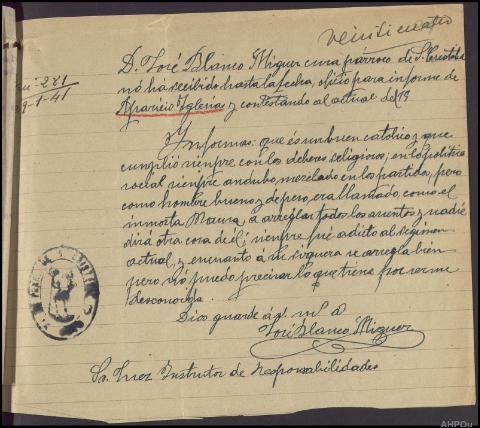 veinticuatro
281
9-1-41
D. José Blanco Miguez cura párroco de S. Cristobal
nó há recibido hasta la fecha, oficio para informe de
Aparicio Iglesias y contestando al actual de 19
Ynformo: que és un buen católico y que
cumplió siempre con los deberes religiosos; en lo politico
social siempre andubo mezclado en los partidos, pero
como hombre bueno y de pero, era llamado, como el
Maura, a arreglar todos los asuntos y nadie
dirá otra cosa de él; siempre fué adicto al régimen
actual, y encuanto á su riqueza se arregla bien
pero nó puedo precisar lo que tiene por serme
desconocida.
Dios guarde á V. m. a
José Blanco Miguez
Sr. Juez Instrutor de Responsabilidades
AHPOu